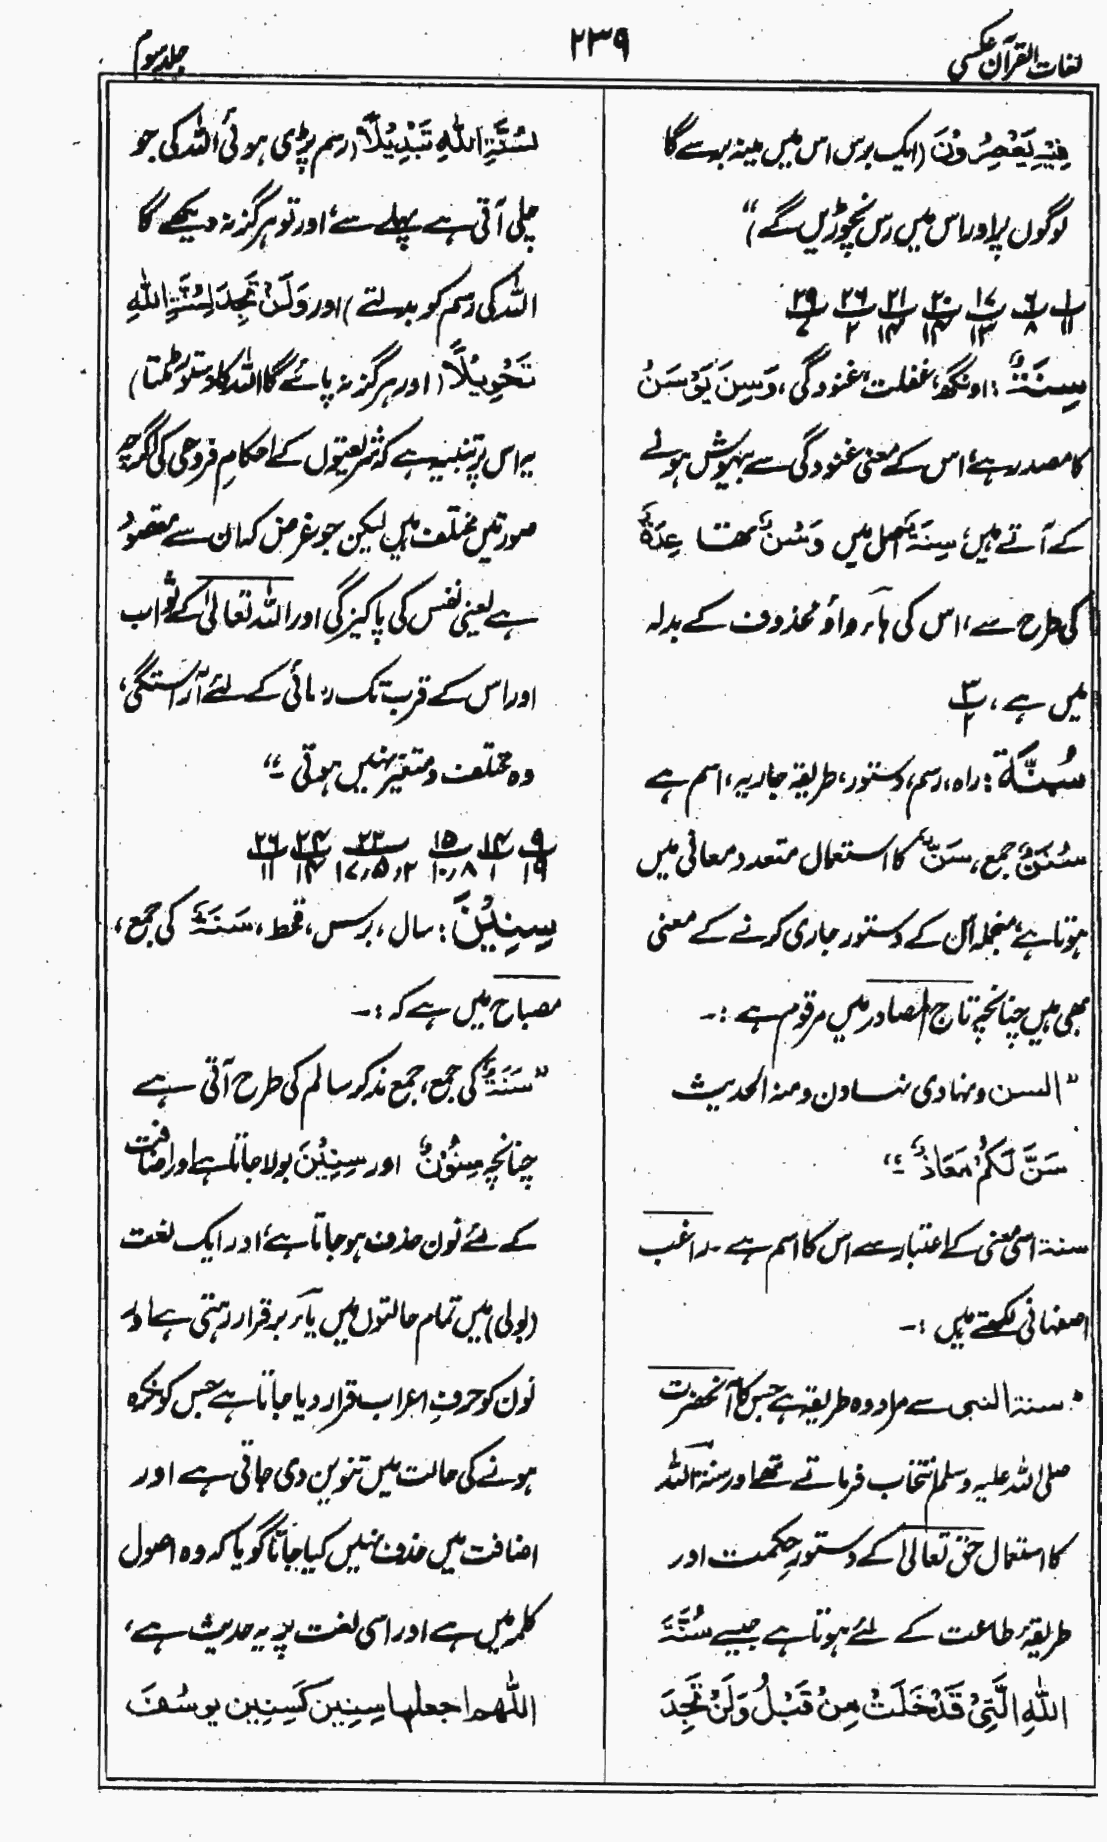 لغات القرآن عکسی
۲۳۹
جلد سوم
فِیْہِ یَعْصِرُوْنَ (ایک برس اس میں مینہ برسے گا
لوگوں پر اور اس میں رس نچوڑیں گے)“
۱/۱۱ ۶/۸ ۱۷/۱۳ ۲۰/۱۴ ۲۱/۱۴ ۲۶/۲ ۲۹/۷
سِنَۃٌ : اونگھ، غفلت، غنودگی، وَسِنَ یَوْسَنُ
کا مصدر ہے، اس کے معنی غنودگی سے بیہوش ہونے
کے آتے ہیں، سِنَۃٌ اصل میں وَسْنٌ تھا عِدَۃٌ
کی طرح سے، اس کی ہاء واؤ محذوف کے بدلہ
میں ہے، ۳/۲
سُنَّۃ : راہ، رسم، دستور، طریقہ جاریہ، اسم ہے
سُنَنٌ جمع، سَنَّ کا استعمال متعدد معانی میں
ہوتا ہے، منجملہ اُن کے دستور جاری کرنے کے معنی
بھی ہیں چنانچہ تاج المصادر میں مرقوم ہے :۔
”السن ونہادی نہادن ومنہ الحدیث
سَنَّ لَکُمْ مَعَاذٌ ۔“
سنۃ اسی معنی کے اعتبار سے اس کا اسم ہے ۔ راغب
اصفہانی لکھتے ہیں :۔
” سنۃ النبی سے مراد وہ طریقہ ہے جس کا آنحضرت
صلی اللہ علیہ وسلم انتخاب فرماتے تھے اور سنۃ اللہ
کا استعمال حق تعالیٰ کے دستورِ حکمت اور
طریقۂ طاعت کے لئے ہوتا ہے جیسے سُنَّۃَ
اللّٰہِ الَّتِیْ قَدْ خَلَتْ مِنْ قَبْلُ وَلَنْ تَجِدَ
لِسُنَّۃِ اللّٰہِ تَبْدِیْلًا (رسم پڑی ہوئی اللہ کی جو
چلی آتی ہے پہلے سے، اور تو ہرگز نہ دیکھے گا
اللہ کی رسم کو بدلتے) اور وَلَنْ تَجِدَ لِسُنَّۃِ اللّٰہِ
تَحْوِیْلًا (اور ہرگز نہ پائے گا اللہ کا دستور ٹلتا)
یہ اس پر تنبیہ ہے کہ شریعتوں کے احکامِ فروعی کی گرچہ
صورتیں مختلف ہیں لیکن جو غرض کہ ان سے مقصود
ہے یعنی نفس کی پاکیزگی اور اللہ تعالیٰ کے ثواب
اور اس کے قرب تک رسائی کے لئے آراستگی،
وہ مختلف و متغیر نہیں ہوتی ۔“
۹/۱۹ ۱۴/۱ ۱۵/۱۰٫۸ ۲۳/۱۷٫۵٫۲ ۲۴/۱۴ ۲۶/۱۱
سِنِیْنَ : سال، برس، قحط، سَنَۃٌ کی جمع،
مصباح میں ہے کہ :۔
”سَنَۃٌ کی جمع، جمع مذکر سالم کی طرح آتی ہے
چنانچہ سِنُوْنَ اور سِنِیْنَ بولا جاتا ہے اور اضافت
کے لئے نون حذف ہوجاتا ہے، اور ایک لغت
(بولی) میں تمام حالتوں میں یاء برقرار رہتی ہے اور
نون کو حرفِ اعراب قرار دیا جاتا ہے جس کو نکرہ
ہونے کی حالت میں تنوین دی جاتی ہے اور
اضافت میں حذف نہیں کیا جاتا گویا کہ وہ اصول
کلمہ میں ہے اور اسی لغت پر یہ حدیث ہے،
اللّٰھم اجعلھا سِنِینَ کَسِنِین یوسُفَ